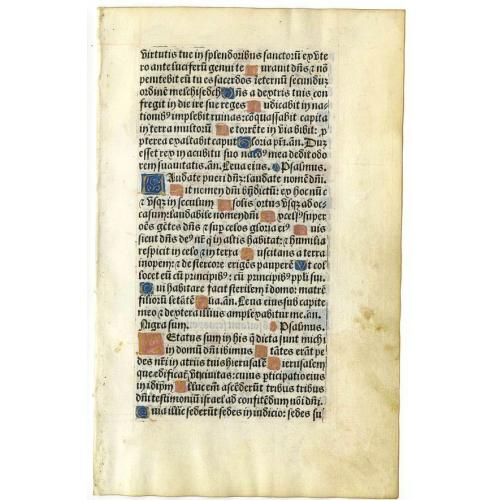 virtutis tue in splendoribus sanctorū ex vte
ro ante luciferū genui te Jurauit dñs & nō
penitebit eū tu es sacerdos ieternū secundūz
ordinē melchisedech Dñs a dextris tuis con
fregit in die ire sue reges Judicabit in na-
tionibꝰ implebit ruinas: cōquassabit capita
in terra multorū De torrēte in via bibit: ꝓ
pterea exaltabit caput Gloria pr̄i. añ. Duz
esset rex in acubitu suo nardꝰ mea dedit odo
rem suauitatis. añ. Leua eius. Psalmus.
Laudate pueri dñz: laudate nomē dñi.
Sit nomen dñi bn̄dictū: ex hoc nūc
& vsqz in seculum A solis ortus vsqz ad oc-
casum: laudabile nomen dñi Excelsꝰ super
oēs gētes dñs & sup celos gloria eiꝰ Quis
sicut dñs deꝰ nr̄ q̄ in altis habitat: & humilia
respicit in celo & in terra Suscitans a terra
inopem: & de stercore erigēs pauperē Ut col
locet eū cū principibꝰ: cū principibꝰ ppli sui.
Qui habitare facit sterilem ī domo: matrē
filiorū letātē Glia. añ. Leua eius sub capite
meo & dextera illius amplexabitur me. añ.
Nigra sum. Psalmus.
Letatus sum in his q̄ dicta sunt michi
in domū dñi ibimus Stātes erāt pe
des nr̄i in atriis tuis hierusalē Hierusalem
que edificat̄ vt ciuitas: cuius pticipatio eius
in idip̄m Illuc em̄ ascēderūt tribus tribus
dñi testimoniū israel ad confitēdum noi dñi.
Quia illic sederūt sedes in iudicio: sedes su